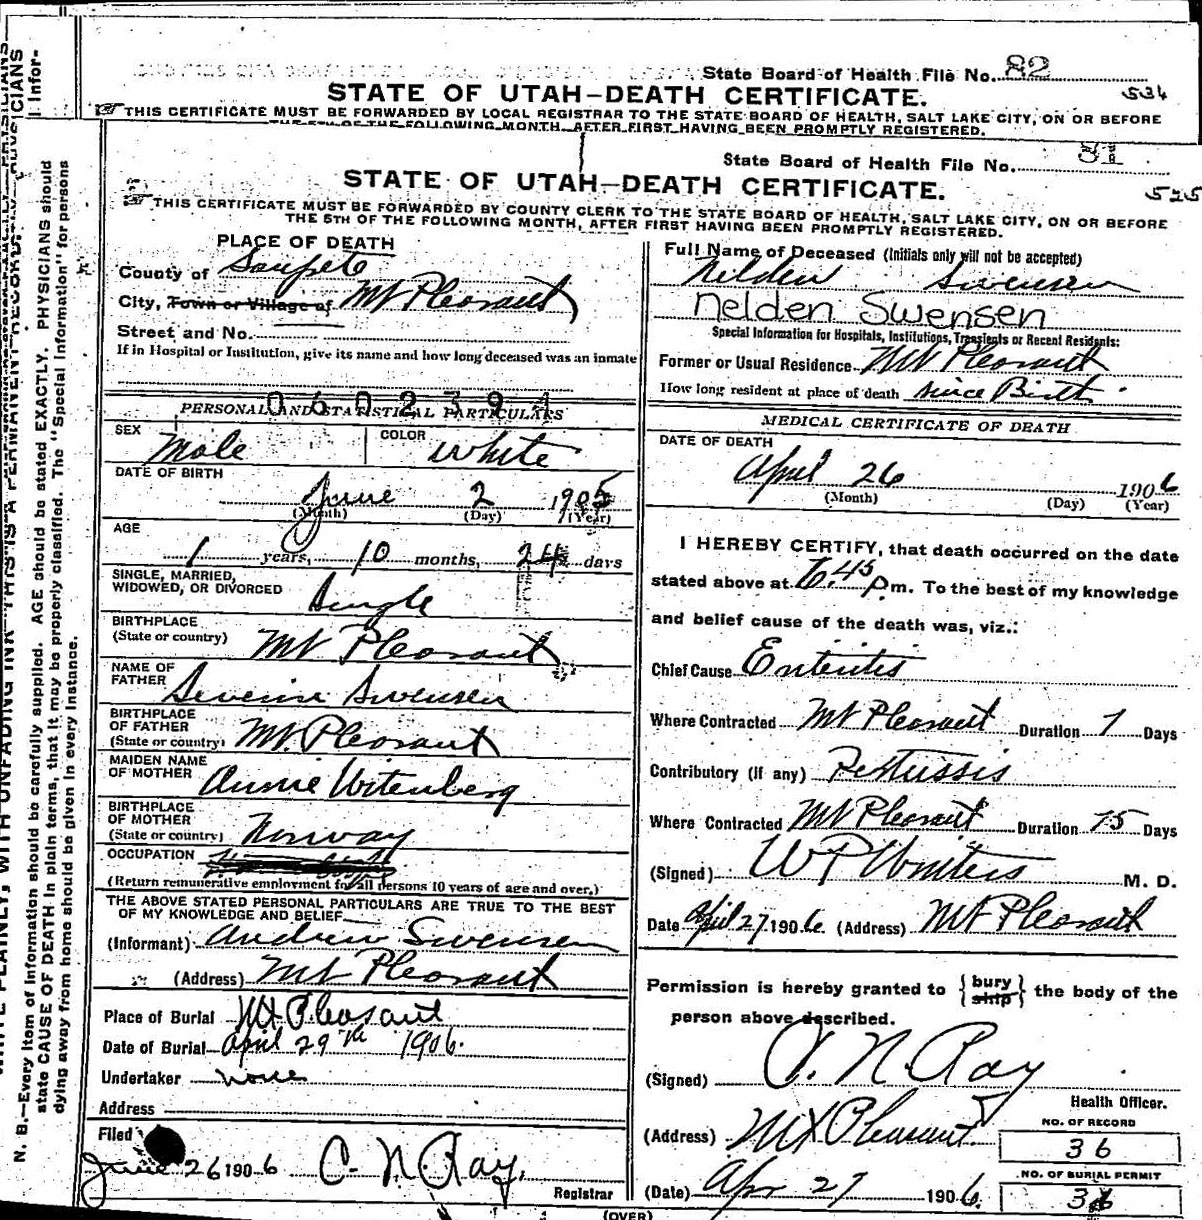 State Board of Health File No. 82
STATE OF UTAH—DEATH CERTIFICATE.
534
THIS CERTIFICATE MUST BE FORWARDED BY LOCAL REGISTRAR TO THE STATE BOARD OF HEALTH, SALT LAKE CITY, ON OR BEFORE
THE 5TH OF THE FOLLOWING MONTH, AFTER FIRST HAVING BEEN PROMPTLY REGISTERED.
State Board of Health File No. 81
STATE OF UTAH—DEATH CERTIFICATE.
525
THIS CERTIFICATE MUST BE FORWARDED BY COUNTY CLERK TO THE STATE BOARD OF HEALTH, SALT LAKE CITY, ON OR BEFORE
THE 5TH OF THE FOLLOWING MONTH, AFTER FIRST HAVING BEEN PROMPTLY REGISTERED.
PLACE OF DEATH
County of Sanpete
City, Town or Village of Mt Pleasant
Street and No.
If in Hospital or Institution, give its name and how long deceased was an inmate
0602394
PERSONAL AND STATISTICAL PARTICULARS
SEX Male COLOR White
DATE OF BIRTH
June 2 1905
(Month) (Day) (Year)
AGE
1 years, 10 months, 24 days
SINGLE, MARRIED,
WIDOWED, OR DIVORCED Single
BIRTHPLACE
(State or country) Mt Pleasant
NAME OF
FATHER Severin Swensen
BIRTHPLACE
OF FATHER
(State or country) Mt. Pleasant
MAIDEN NAME
OF MOTHER Annie Witenberg
BIRTHPLACE
OF MOTHER
(State or country) Norway
OCCUPATION
(Return remunerative employment for all persons 10 years of age and over.)
THE ABOVE STATED PERSONAL PARTICULARS ARE TRUE TO THE BEST
OF MY KNOWLEDGE AND BELIEF
(Informant) Andrew Swensen
(Address) Mt Pleasant
Place of Burial Mt Pleasant
Date of Burial April 29th 1906.
Undertaker none
Address
Filed
June 26 1906 C. N. Ray.
Registrar
Full Name of Deceased (Initials only will not be accepted)
Nelden Swensen
Nelden Swensen
Special Information for Hospitals, Institutions, Transients or Recent Residents:
Former or Usual Residence Mt Pleasant
How long resident at place of death since Birth
MEDICAL CERTIFICATE OF DEATH
DATE OF DEATH
April 26 1906
(Month) (Day) (Year)
I HEREBY CERTIFY, that death occurred on the date
stated above at 6.45 Pm. To the best of my knowledge
and belief cause of the death was, viz.:
Chief Cause Enteritis
Where Contracted Mt Pleasant Duration 7 Days
Contributory (If any) Pertussis
Where Contracted Mt Pleasant Duration 15 Days
(Signed) W P Winters M. D.
Date April 27 1906 (Address) Mt Pleasant
Permission is hereby granted to {bury ship} the body of the
person above described.
(Signed) C. N. Ray
Health Officer.
(Address) Mt Pleasant
NO. OF RECORD
36
NO. OF BURIAL PERMIT
36
(Date) Apr 27 1906.
(OVER)
N. B.—Every item of information should be carefully supplied. AGE should be stated EXACTLY. PHYSICIANS should
state CAUSE OF DEATH in plain terms, that it may be properly classified. The "Special Information" for persons
dying away from home should be given in every instance.